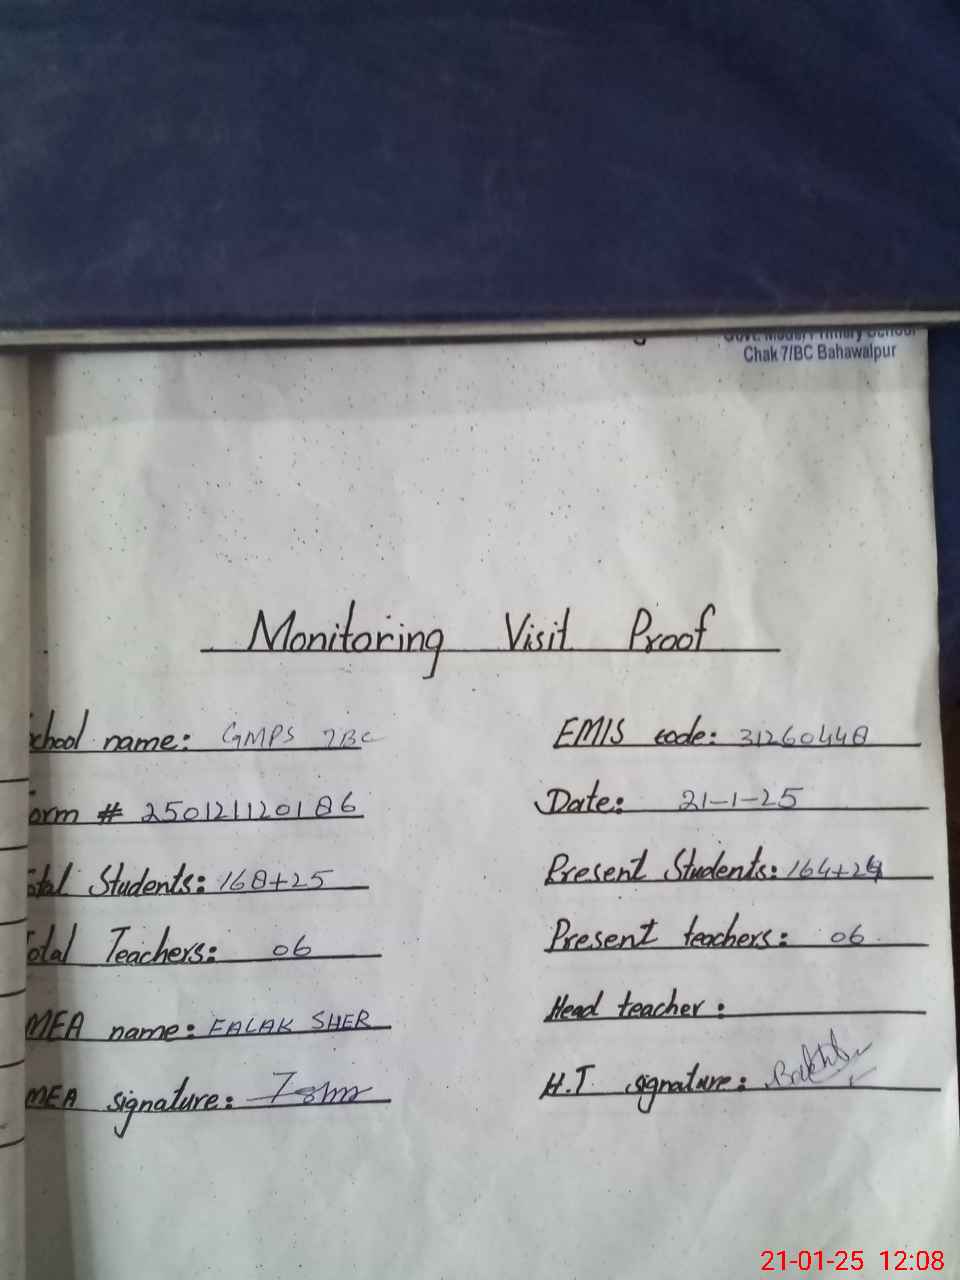 Chak 7/BC Bahawalpur
Monitoring Visit Proof
chool name: GMPS 7BC
EMIS code: 31260448
orm # 250121120186
Date: 21-1-25
otal Students: 168+25
Present Students: 164+24
otal Teachers: 06
Present teachers: 06
MEA name: FALAK SHER
Head teacher:
MEA signature:
H.T signature:
21-01-25 12:08